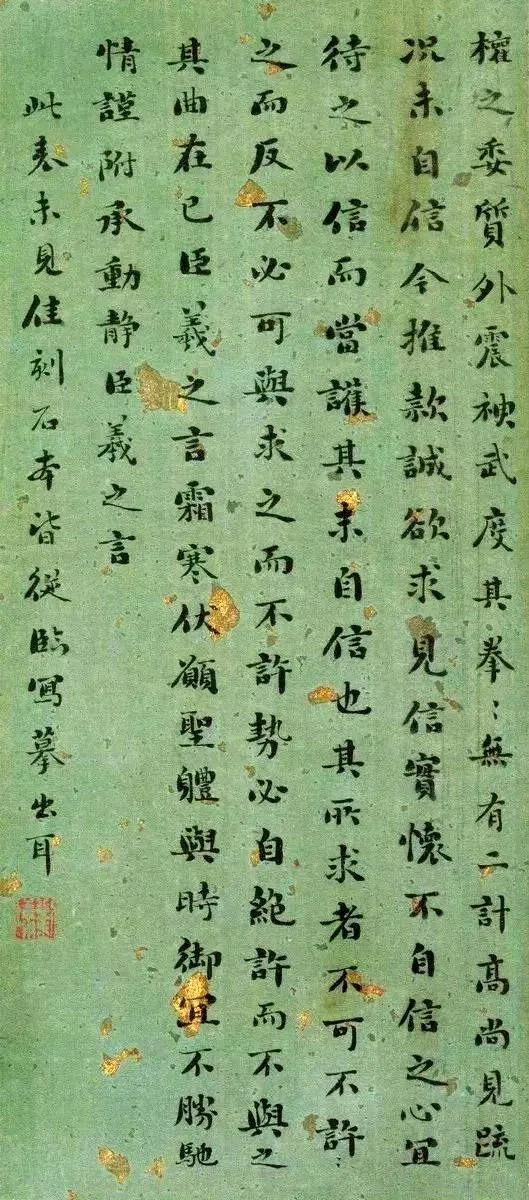 權之委質外震神武度其拳〻無有二計高尚見疏
况未自信今推款誠欲求見信實懷不自信之心宜
待之以信而當護其未自信也其所求者不可不許〻
之而反不必可與求之而不許勢必自絕許而不與之
其曲在己臣羲之言霜寒伏願聖體與時御宜不勝馳
情謹附承動静臣羲之言
此表未見佳刻石本皆從臨寫摹出耳